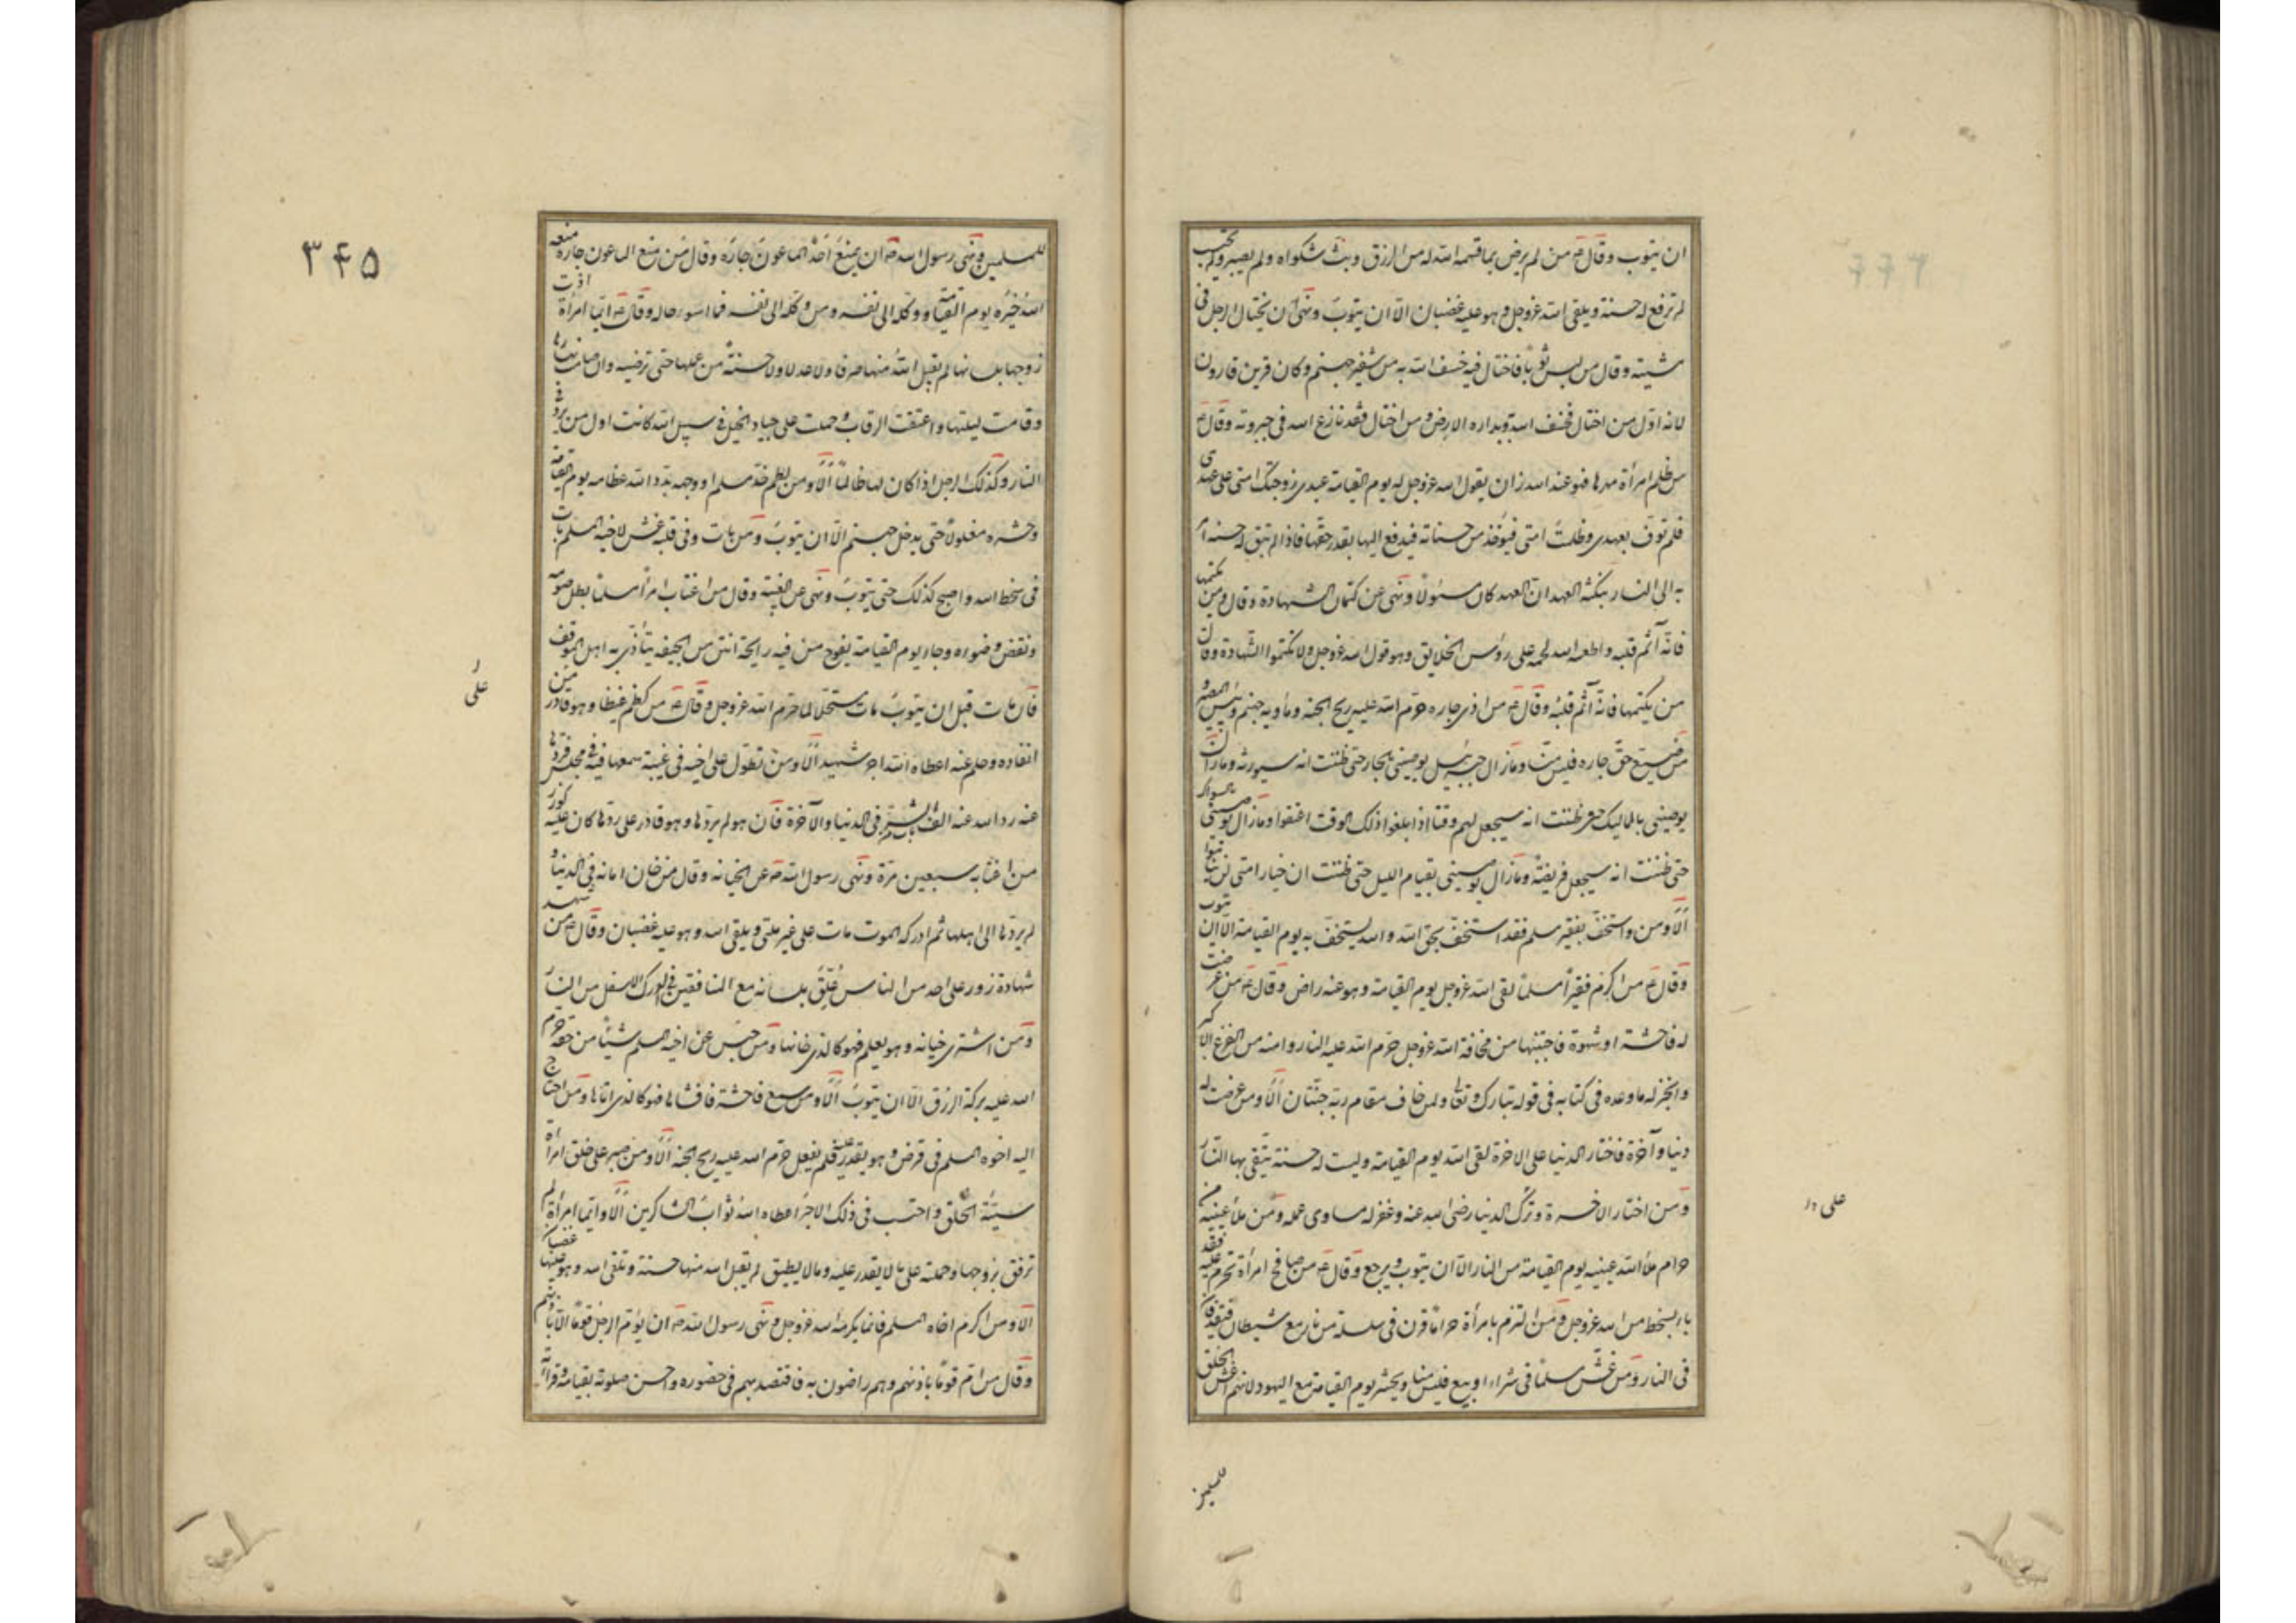 ان يتوب وقال ع من لم يرض بما قسمه الله له من الرزق وبث شكواه ولم يصبر ولم يحتسب
لم ترفع له حسنة ويلقى الله عزوجل وهو عليه غضبان الّا ان يتوبَ ونهى ان يختال الرجل فى
مشيته وقال من لبس ثوبًا فاختال فيه خسف الله به من شفير جهنم وكان قرين قارون
لانه اوّل من اختال فخسف الله به وبداره الارض ومن اختال فقد نازع الله فى جبروته وقال ع
من ظلم امرأة مهرها فهو عند الله زان يقول الله عزوجل له يوم القيامة عبدى زوجتك امتى على عهدى
فلم توف بعهدى وظلمت امتى فيؤخذ من حسناته فيدفع اليها بقدر حقّها فاذا لم تبق له حسنة امر
به الى النار بنكثه العهد انّ العهد كان مسئولًا ونهى عن كتمان الشهادة وقال ومن يكتمها
فانّه آثم قلبه واطعمه الله لحمه على رؤس الخلايق وهو قول الله عزوجل ولا تكتموا الشّهادة وقال
من يكتمها فانّه آثم قلبُه وقال ع من اذى جاره حرّم الله عليه ريح الجنه ومأويه جهنم وبئس المصير و
من ضيّع حقّ جاره فليس منّا ومازال جبرئيل يوصينى بالجار حتى ظننت انه سيورثه ومازال
يوصينى بالمماليك حتى ظننت انه سيجعل لهم وقتا اذا بلغوا ذلك الوقت اعتقوا ومازال يوصينى بالسواك
حتى ظننت انه سيجعل فريضةً ومازال يوصينى بقيام الليل حتى ظننت ان خيار امتى لن يناموا
اَلَا ومن واستخفّ بفقير مسلم فقد استخفّ بحق الله والله يستخفّ به يوم القيامة الّا ان يتوب
وقال ع من اكرم فقيراً مسلماً لقى الله عزوجل يوم القيامة وهو عنه راض وقال ع من عرضت
له فاحشة او شهوة فاجتنبها من مخافة الله عزوجل حرّم الله عليه النار وامنه من الفزع الاكبر
وانجز له ما وعده فى كتابه فى قوله تبارك وتعالى ولمن خاف مقام ربّه جنّتان اَلَا ومن عرضت له
دنيا وآخرة فاختار الدنيا على الاخرة لقى الله يوم القيامة وليست له حسنة يتّقى بها النّار
ومن اختار الاخرة وترك الدنيا رضى الله عنه وغفر له مساوى عمله ومن ملأ عينيه من
حرام ملأ الله عينيه يوم القيامة من النار الّا ان يتوب ويرجع وقال ع من صافح امرأة تحرم عليه فقد
باء بسخط من الله عزوجل ومن التزم بامرأة حراماً قرن فى سلسلة من نار مع شيطان فيقذفان
فى النار ومن غشّ مسلماً فى شراء او بيع فليس منا ويحشر يوم القيامة مع اليهود لانهم اغشّ الخلق
على
٣۴۵
للمسلمين ونهى رسول الله ص ان يمنعَ احدٌ الماعونَ جارَه وقال مَن منع الماعون جاره منعه
اللهُ خيرَه يوم القيامة ووكله الى نفسه ومن وكله الى نفسه فما اسوء حاله وقال ع ايّما امرأة اذت
زوجها بلسانها لم يقبل اللهُ منها صرفا ولا عدلا ولا حسنةً من عملها حتى ترضيه وان صامت نهارها
وقامت ليلتها واعتقت الرقاب وحملت على جياد الخيل فى سبيل الله كانت اول من يرد
النار وكذلك الرجل اذا كان لها ظالمًا اَلَا ومن لطم خدّ مسلم او وجهه بدّد الله عظامه يوم القيامة
وحشره مغلولًا حتى يدخل جهنم الّا ان يتوبَ ومَن بات وفى قلبه غشّ لاخيه المسلم بات
فى سخط الله واصبح كذلك حتى يتوبَ ونهى عن الغيبة وقال من اغتاب امرأ مسلمًا بطل صومه
ونقض وضوءه وجاء يوم القيامة يفوح من فيه رايحة انتن من الجيفة يتأذى به اهل الموقف
فان مات قبل ان يتوبَ مات مستحلا لما حرّم الله عزوجل وقال ع من كظم غيظا وهو قادر
على
انفاذه وحلم عنه اعطاه الله اجر شهيد اَلَا ومن تطوّل على اخيه فى غيبة سمعها فيه فى مجلس فردّها
عنه رد الله عنه الف باب من الشر فى الدنيا والآخرة فان هو لم يردّها وهو قادر على ردّها كان عليه كوزر
من اغتابه سبعين مرّة ونهى رسول الله ص عن الخيانة وقال من خان امانة فى الدنيا و
لم يردّها الى اهلها ثم ادركه الموت مات على غير ملتى ويلقى الله وهو عليه غضبان وقال ع من شهد
شهادة زور على احد من الناس عُلّق بلسانه مع المنافقين فى الدرك الاسفل من النار
ومَن اشترى خيانة وهو يعلم فهو كالذى خانها ومن حبس عن اخيه المسلم شيئًا من حقّه حرّم
الله عليه بركة الرزق الّا ان يتوبَ اَلَا ومن سمع فاحشة فافشاها فهو كالذى اتاها ومن احتاج
اليه اخوه المسلم فى قرض وهو يقدر عليه فلم يفعل حرّم الله عليه ريح الجنة اَلَا ومن صبر على خلق امرأة
سيّئة الخلق واحتسب فى ذلك الاجر اعطاه اللهُ ثوابَ الشاكرين اَلَا وايّما امرأة لم
ترفق بزوجها وحملته على ما لا يقدر عليه وما لا يطيق لم يقبل الله منها حسنة وتلقى الله وهو عليها غضبان
اَلَا ومن اكرم اخاه المسلم فانما يكرم الله عزوجل ونهى رسول الله ص ان يؤمّ الرجل قومًا الّا باذنهم
وقال من امّ قومًا باذنهم وهم راضون به فاقتصد بهم فى حضوره واحسن صلوته بقيامه وقراءته